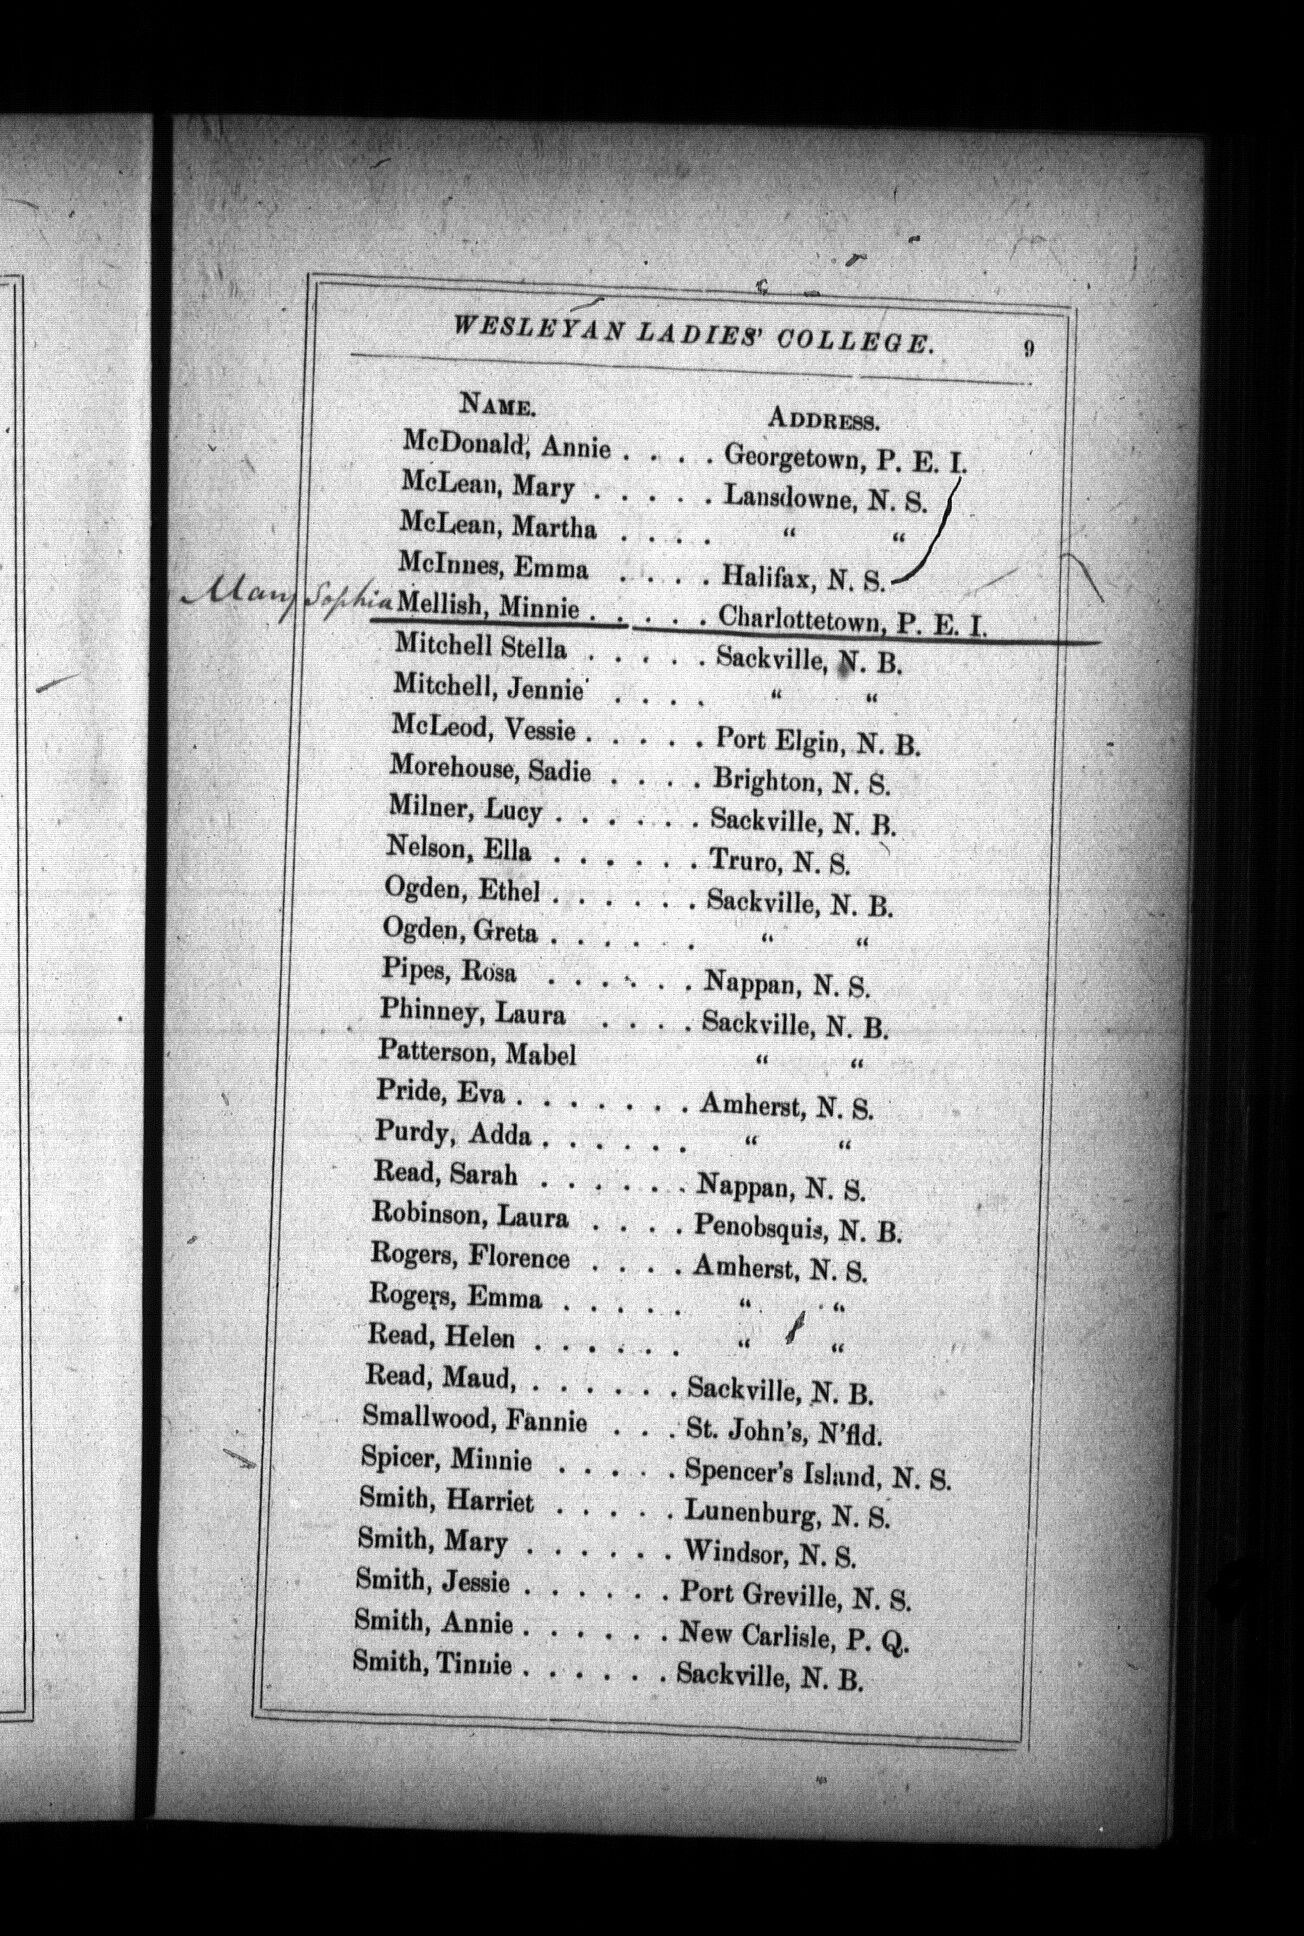 WESLEYAN LADIES' COLLEGE. 9
NAME. ADDRESS.
McDonald, Annie . . . . Georgetown, P. E. I.
McLean, Mary . . . . . Lansdowne, N. S.
McLean, Martha . . . . “ “
McInnes, Emma . . . . Halifax, N. S.
Mary Sophia Mellish, Minnie . . . . . Charlottetown, P. E. I.
Mitchell Stella . . . . . Sackville, N. B.
Mitchell, Jennie . . . . “ “
McLeod, Vessie . . . . . Port Elgin, N. B.
Morehouse, Sadie . . . . Brighton, N. S.
Milner, Lucy . . . . . . Sackville, N. B.
Nelson, Ella . . . . . . Truro, N. S.
Ogden, Ethel . . . . . . Sackville, N. B.
Ogden, Greta . . . . . “ “
Pipes, Rosa . . . . . . Nappan, N. S.
Phinney, Laura . . . . Sackville, N. B.
Patterson, Mabel “ “
Pride, Eva . . . . . . . Amherst, N. S.
Purdy, Adda . . . . . . “ “
Read, Sarah . . . . . . Nappan, N. S.
Robinson, Laura . . . . Penobsquis, N. B.
Rogers, Florence . . . . Amherst, N. S.
Rogers, Emma . . . . . “ “
Read, Helen . . . . . . “ “
Read, Maud, . . . . . . Sackville, N. B.
Smallwood, Fannie . . . St. John's, N'fld.
Spicer, Minnie . . . . . Spencer's Island, N. S.
Smith, Harriet . . . . . Lunenburg, N. S.
Smith, Mary . . . . . . Windsor, N. S.
Smith, Jessie . . . . . . Port Greville, N. S.
Smith, Annie . . . . . . New Carlisle, P. Q.
Smith, Tinnie . . . . . . Sackville, N. B.